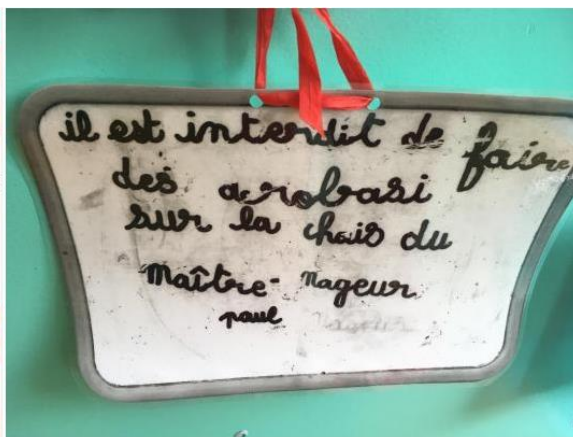 il est interdit de faire
des arobasi
sur la chais du
Maître-Nageur
paul